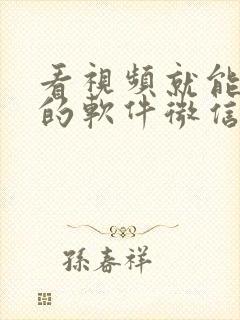 看視頻就能
的軟件微信
孫春祥